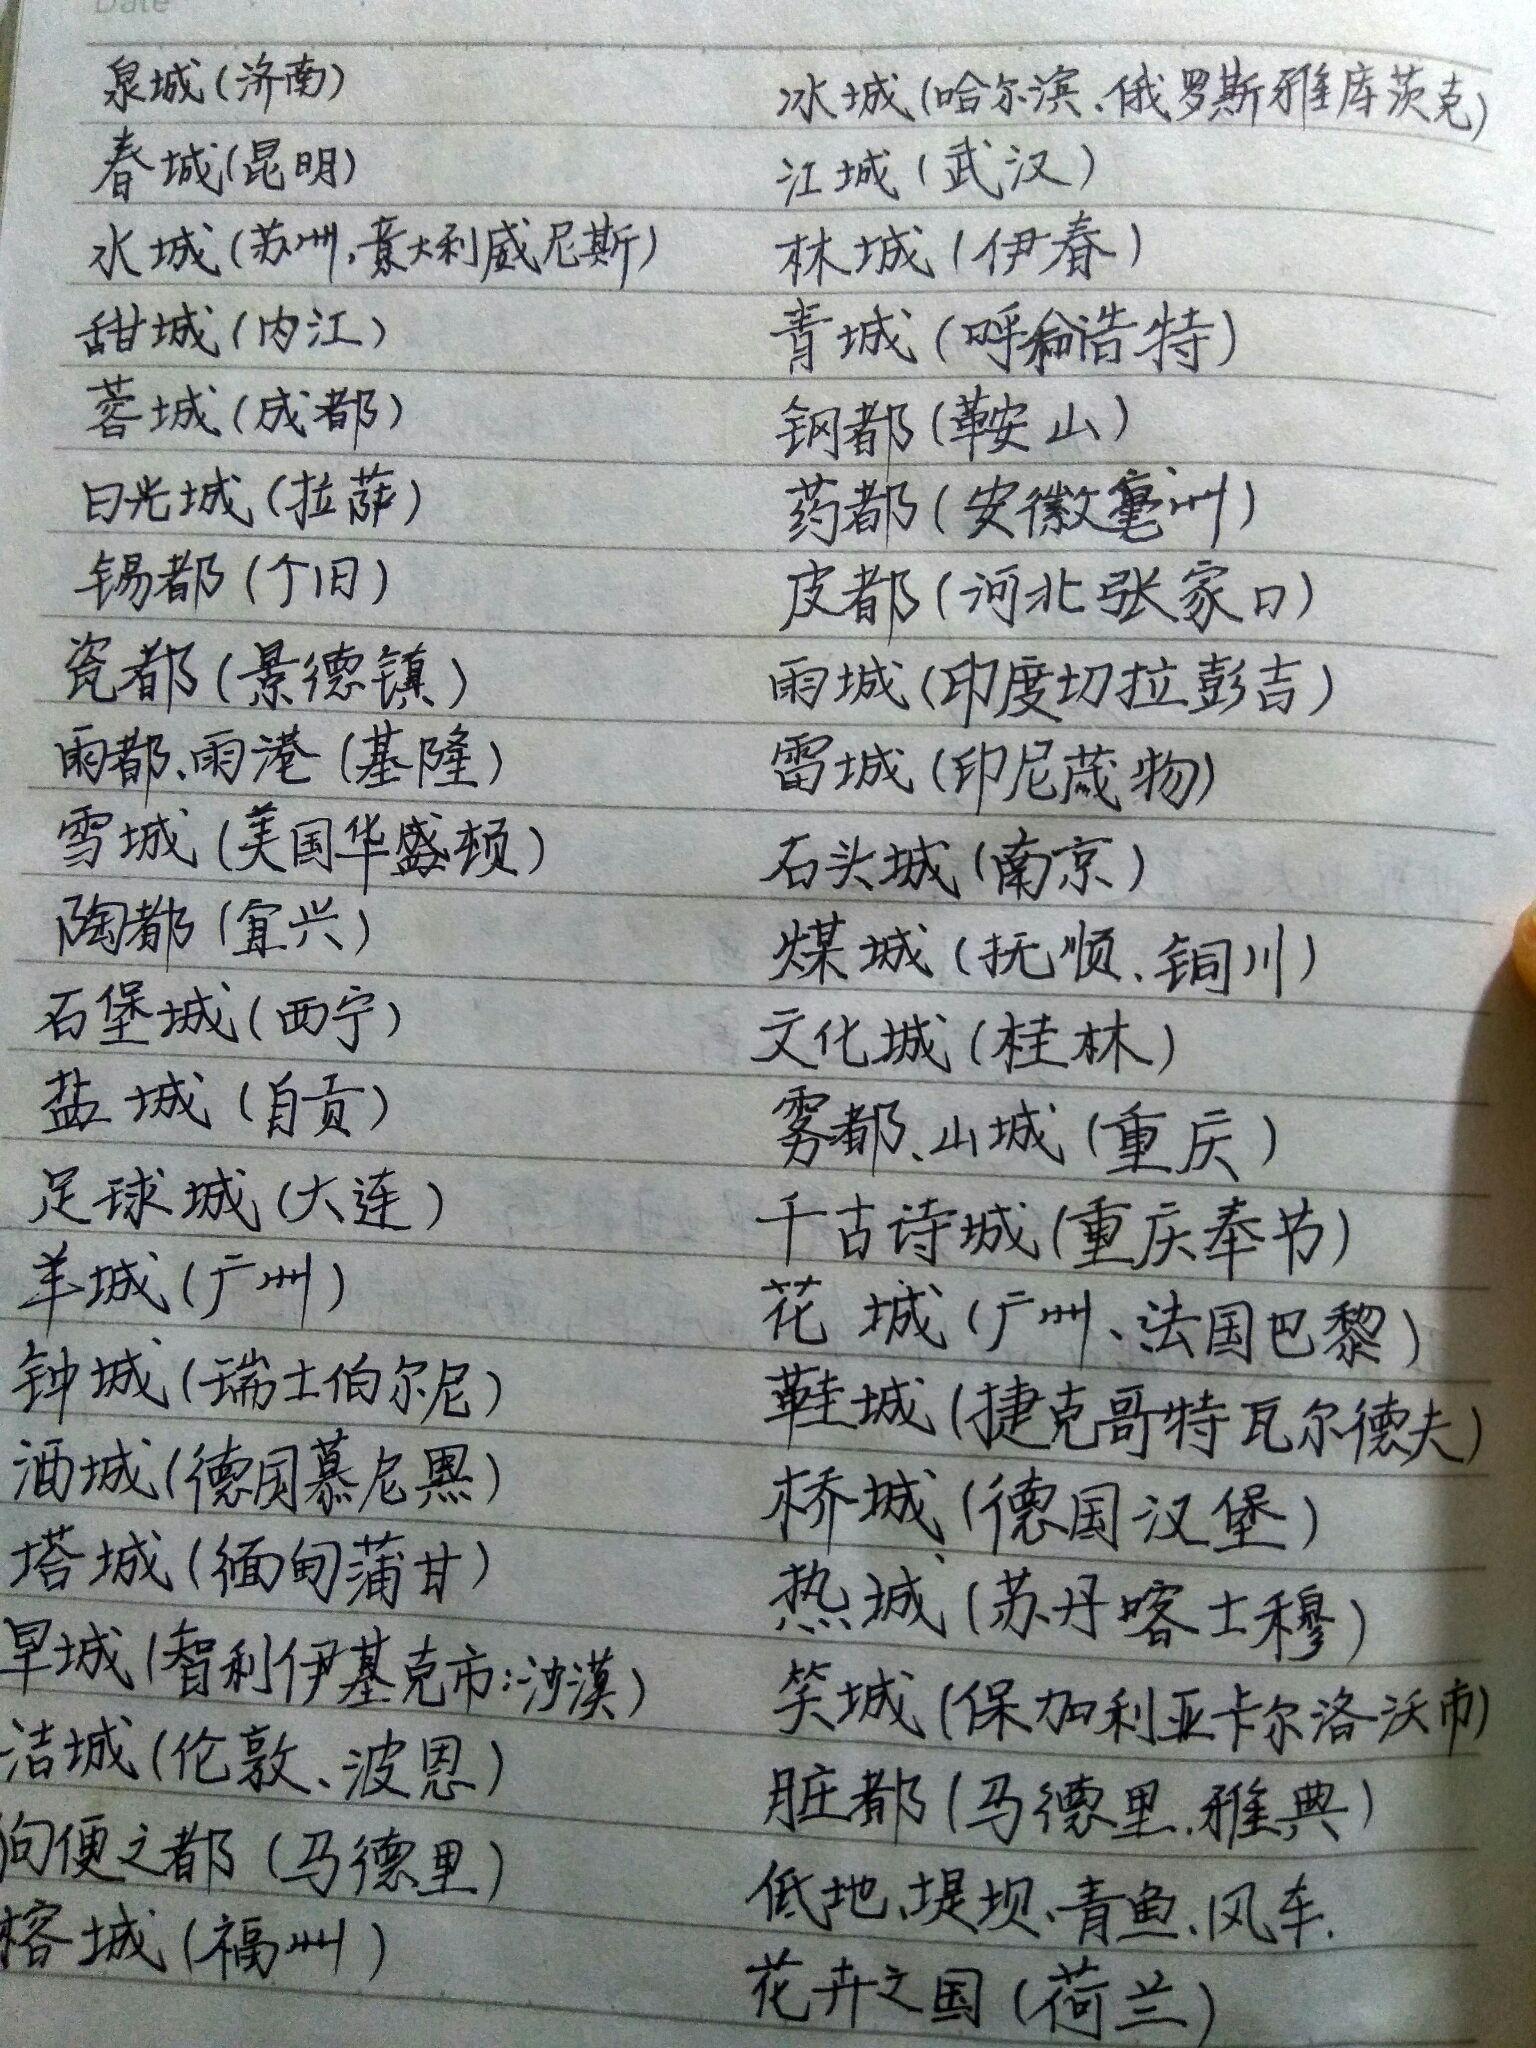 Date
泉城(济南)
春城(昆明)
水城(苏州、意大利威尼斯)
甜城(内江)
蓉城(成都)
日光城(拉萨)
锡都(个旧)
瓷都(景德镇)
雨都、雨港(基隆)
雪城(美国华盛顿)
陶都(宜兴)
石堡城(西宁)
盐城(自贡)
足球城(大连)
羊城(广州)
钟城(瑞士伯尔尼)
酒城(德国慕尼黑)
塔城(缅甸蒲甘)
旱城(智利伊基克市:沙漠)
洁城(伦敦、波恩)
狗便之都(马德里)
榕城(福州)
冰城(哈尔滨、俄罗斯雅库茨克)
江城(武汉)
林城(伊春)
青城(呼和浩特)
钢都(鞍山)
药都(安徽亳州)
皮都(河北张家口)
雨城(印度切拉彭吉)
雷城(印尼茂物)
石头城(南京)
煤城(抚顺、铜川)
文化城(桂林)
雾都、山城(重庆)
千古诗城(重庆奉节)
花城(广州、法国巴黎)
鞋城(捷克哥特瓦尔德夫)
桥城(德国汉堡)
热城(苏丹喀土穆)
笑城(保加利亚卡尔洛沃市)
脏都(马德里、雅典)
低地、堤坝、青鱼、风车、
花卉之国(荷兰)